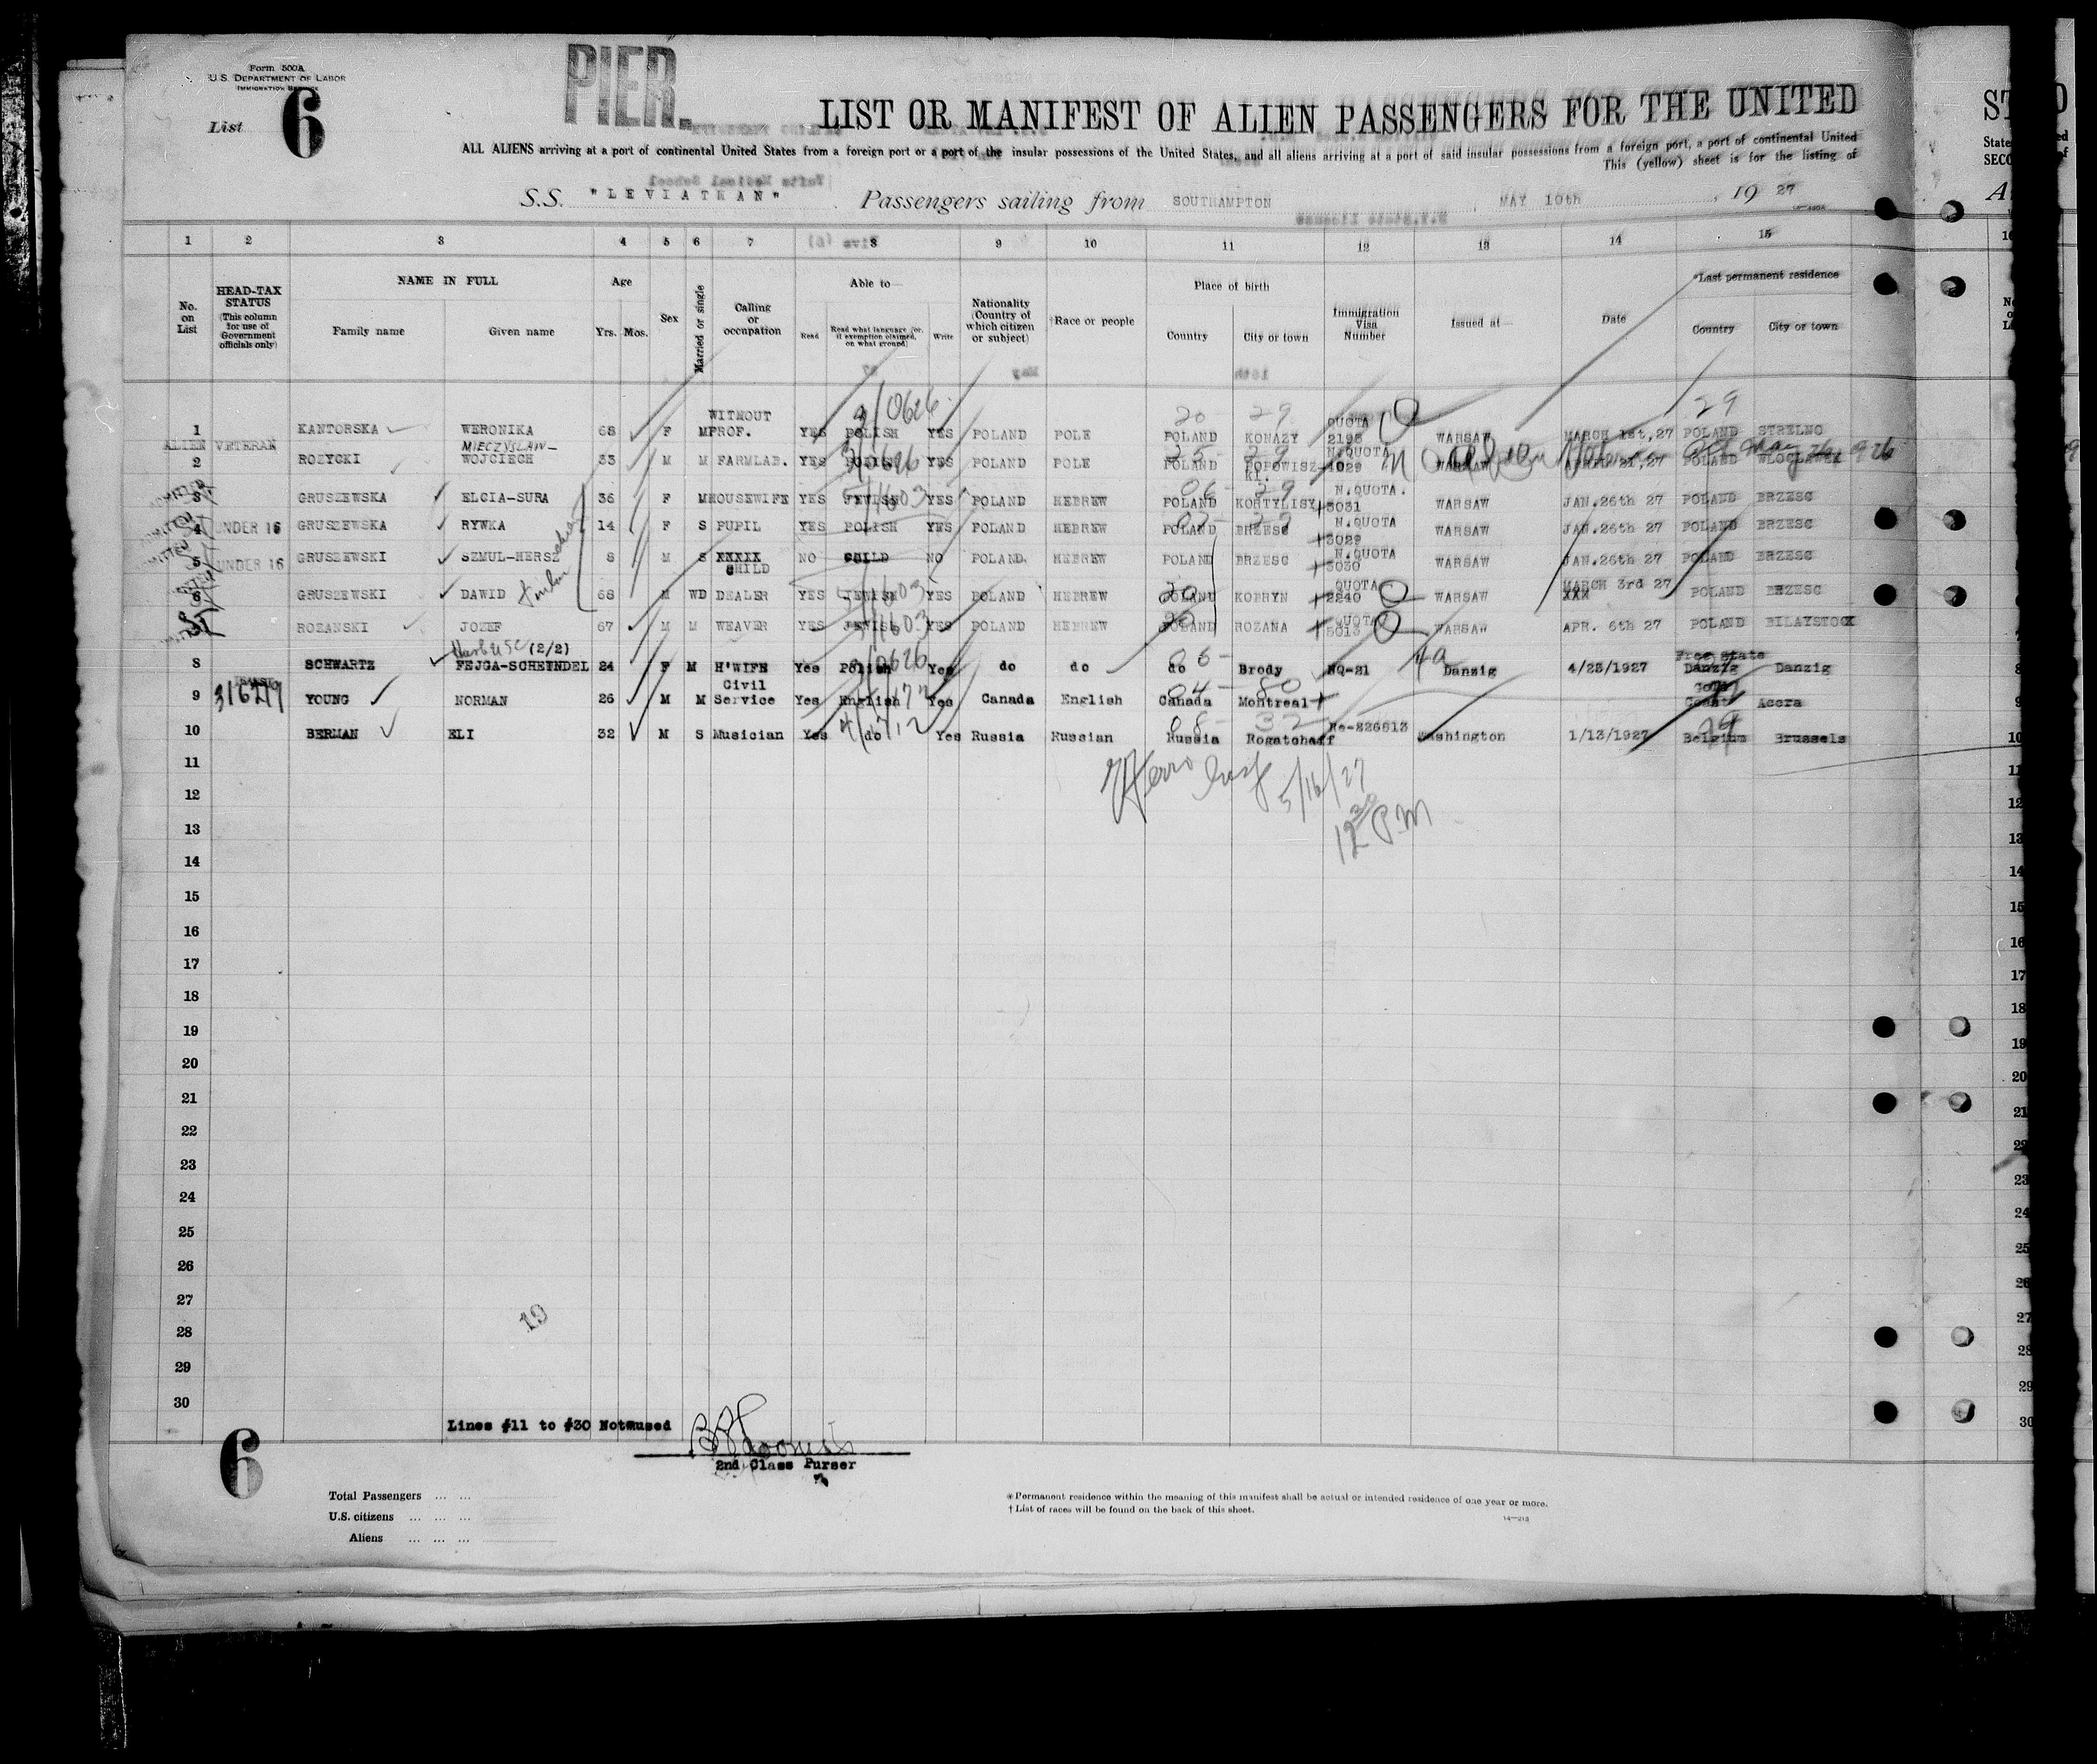 Form 500A
U.S. DEPARTMENT OF LABOR
IMMIGRATION SERVICE
List 6
PIER.
LIST OR MANIFEST OF ALIEN PASSENGERS FOR THE UNITED
ALL ALIENS arriving at a port of continental United States from a foreign port or a port of the insular possessions of the United States, and all aliens arriving at a port of said insular possessions from a foreign port, a port of continental United
This (yellow) sheet is for the listing of
S.S. "LEVIATHAN" Passengers sailing from SOUTHAMPTON, MAY 10th, 1927
1 2 3 4 5 6 7 8 9 10 11 12 13 14 15
No. on List
HEAD-TAX STATUS (This column for use of Government officials only)
NAME IN FULL Family name Given name
Age Yrs. Mos.
Sex
Married or single
Calling or occupation
Able to Read Read what language (or, if exemption claimed, on what ground) Write
Nationality (Country of which citizen or subject)
†Race or people
Place of birth Country City or town
Immigration Visa Number
Issued at
Date
*Last permanent residence Country City or town
1 KANTORSKA WERONIKA 68 F M WITHOUT PROF. YES POLISH YES POLAND POLE POLAND KONARY QUOTA 2195 WARSAW MARCH 1st,27 POLAND STRELNO
ALIEN VETERAN
2 ROZYCKI MIECZYSLAW-WOJCIECH 33 M M FARMLAB. YES POLISH YES POLAND POLE POLAND N.QUOTA 1029 WARSAW APRIL 21,27 POLAND WLOCLAWEK
3 GRUSZEWSKA ELCIA-SURA 36 F M HOUSEWIFE YES JEWISH YES POLAND HEBREW POLAND KORTYLISY N.QUOTA. 3031 WARSAW JAN.26th 27 POLAND BRZESC
4 UNDER 16 GRUSZEWSKA RYWKA 14 F S PUPIL YES POLISH YES POLAND HEBREW POLAND BRZESC N.QUOTA 3029 WARSAW JAN.26th 27 POLAND BRZESC
5 UNDER 16 GRUSZEWSKI SZMUL-HERSZ 8 M S XXXXX CHILD NO CHILD NO POLAND. HEBREW POLAND BRZESC N.QUOTA 3030 WARSAW JAN.26th 27 POLAND BRZESC
6 GRUSZEWSKI DAWID 68 M WD DEALER YES JEWISH YES POLAND HEBREW POLAND KOBRYN QUOTA 2240 WARSAW MARCH 3rd 27 XXX POLAND BRZESC
ROZANSKI JOZEF 67 M M WEAVER YES JEWISH YES POLAND HEBREW POLAND ROZANA QUOTA 5013 WARSAW APR. 6th 27 POLAND BILAYSTOCK
8 SCHWARTZ FEJGA-SCHEINDEL (2/2) 24 F M H'WIFE Yes Polish Yes do do do Brody NQ-21 Danzig 4/23/1927 Free State Danzig Danzig
9 316279 YOUNG NORMAN 26 M M Civil Service Yes English Yes Canada English Canada Montreal Gold Coast Accra
10 BERMAN ELI 32 M S Musician Yes do Yes Russia Russian Russia Rogatchoff Re-226613 Washington 1/13/1927 Belgium Brussels
11
5/16/27
12
12 30 P.M
13
14
15
16
17
18
19
20
21
22
23
24
25
26
27
19
28
29
30
Lines #11 to #30 Not used
2nd Class Purser
6
Total Passengers
U.S. citizens
Aliens
*Permanent residence within the meaning of this manifest shall be actual or intended residence of one year or more.
†List of races will be found on the back of this sheet.
14—213